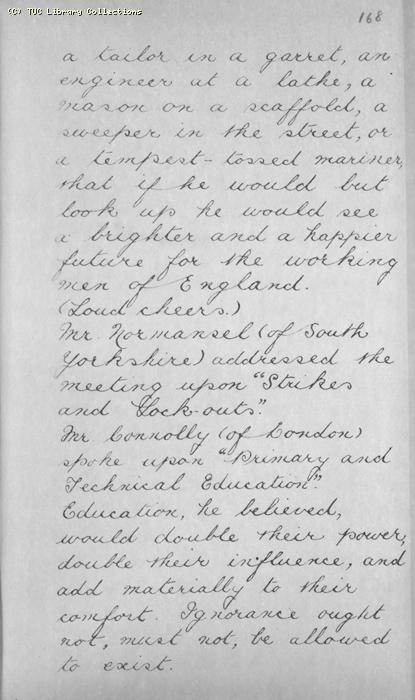 (C) TUC Library Collections
168
a tailor in a garret, an
engineer at a lathe, a
mason on a scaffold, a
sweeper in the street, or
a tempest-tossed mariner,
that if he would but
look up he would see
a brighter and a happier
future for the working
men of England.
(Loud cheers.)
Mr. Normansel (of South
Yorkshire) addressed the
meeting upon "Strikes
and Lock-outs".
Mr Connolly (of London)
spoke upon "Primary and
Technical Education".
Education, he believed,
would double their power,
double their influence, and
add materially to their
comfort. Ignorance ought
not, must not, be allowed
to exist.